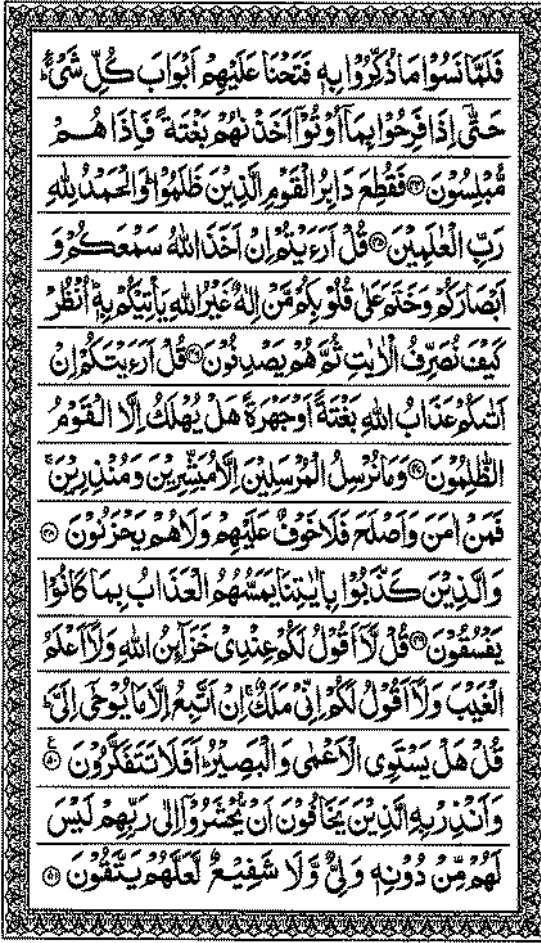 فَلَمَّا نَسُوْا مَا ذُكِّرُوْا بِهٖ فَتَحْنَا عَلَيْهِمْ اَبْوَابَ كُلِّ شَیْءٍ ؕ
حَتّٰۤی اِذَا فَرِحُوْا بِمَاۤ اُوْتُوْۤا اَخَذْنٰهُمْ بَغْتَةً فَاِذَا هُمْ
مُّبْلِسُوْنَ ۝۴۴ فَقُطِعَ دَابِرُ الْقَوْمِ الَّذِيْنَ ظَلَمُوْا ؕ وَالْحَمْدُ لِلّٰهِ
رَبِّ الْعٰلَمِيْنَ ۝۴۵ قُلْ اَرَءَيْتُمْ اِنْ اَخَذَ اللّٰهُ سَمْعَكُمْ وَ
اَبْصَارَكُمْ وَخَتَمَ عَلٰی قُلُوْبِكُمْ مَّنْ اِلٰهٌ غَيْرُ اللّٰهِ يَاْتِيْكُمْ بِهٖ ؕ اُنْظُرْ
كَيْفَ نُصَرِّفُ الْاٰيٰتِ ثُمَّ هُمْ يَصْدِفُوْنَ ۝۴۶ قُلْ اَرَءَيْتَكُمْ اِنْ
اَتٰىكُمْ عَذَابُ اللّٰهِ بَغْتَةً اَوْ جَهْرَةً هَلْ يُهْلَكُ اِلَّا الْقَوْمُ
الظّٰلِمُوْنَ ۝۴۷ وَمَا نُرْسِلُ الْمُرْسَلِيْنَ اِلَّا مُبَشِّرِيْنَ وَمُنْذِرِيْنَ ۚ
فَمَنْ اٰمَنَ وَاَصْلَحَ فَلَا خَوْفٌ عَلَيْهِمْ وَلَا هُمْ يَحْزَنُوْنَ ۝۴۸
وَالَّذِيْنَ كَذَّبُوْا بِاٰيٰتِنَا يَمَسُّهُمُ الْعَذَابُ بِمَا كَانُوْا
يَفْسُقُوْنَ ۝۴۹ قُلْ لَّاۤ اَقُوْلُ لَكُمْ عِنْدِیْ خَزَآئِنُ اللّٰهِ وَلَاۤ اَعْلَمُ
الْغَيْبَ وَلَاۤ اَقُوْلُ لَكُمْ اِنِّیْ مَلَكٌ ۚ اِنْ اَتَّبِعُ اِلَّا مَا يُوْحٰۤی اِلَیَّ ؕ
قُلْ هَلْ يَسْتَوِی الْاَعْمٰی وَالْبَصِيْرُ ؕ اَفَلَا تَتَفَكَّرُوْنَ ۝۵۰ ع
وَاَنْذِرْ بِهِ الَّذِيْنَ يَخَافُوْنَ اَنْ يُّحْشَرُوْۤا اِلٰی رَبِّهِمْ لَيْسَ
لَهُمْ مِّنْ دُوْنِهٖ وَلِیٌّ وَّلَا شَفِيْعٌ لَّعَلَّهُمْ يَتَّقُوْنَ ۝۵۱